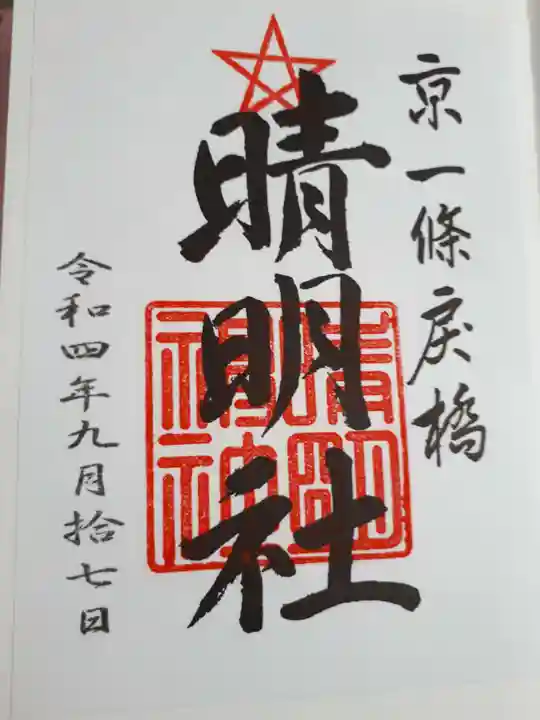 京一條戻橋
晴明社
令和四年九月拾七日